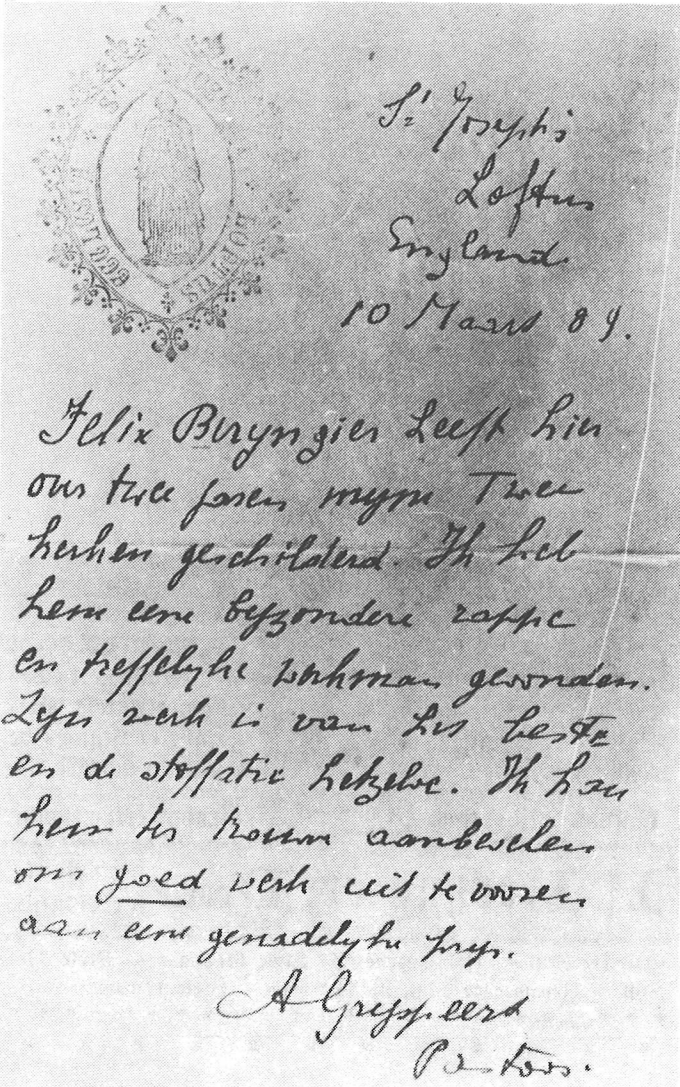 St Joseph's
Loftus
England
10 Maart 89.
Felix Beryngier heeft hier
over twee jaren myne Twee
kerken geschilderd. Ik heb
hem eene byzondere rappe
en treffelyke werkman gevonden.
Zyn werk is van het beste
en de stoffatie hetzelve. Ik kan
hem ter trouwe aanbevelen
om goed werk uit te voeren
aan eene genadelyke prys.
A Gryspeert
Pastoor.